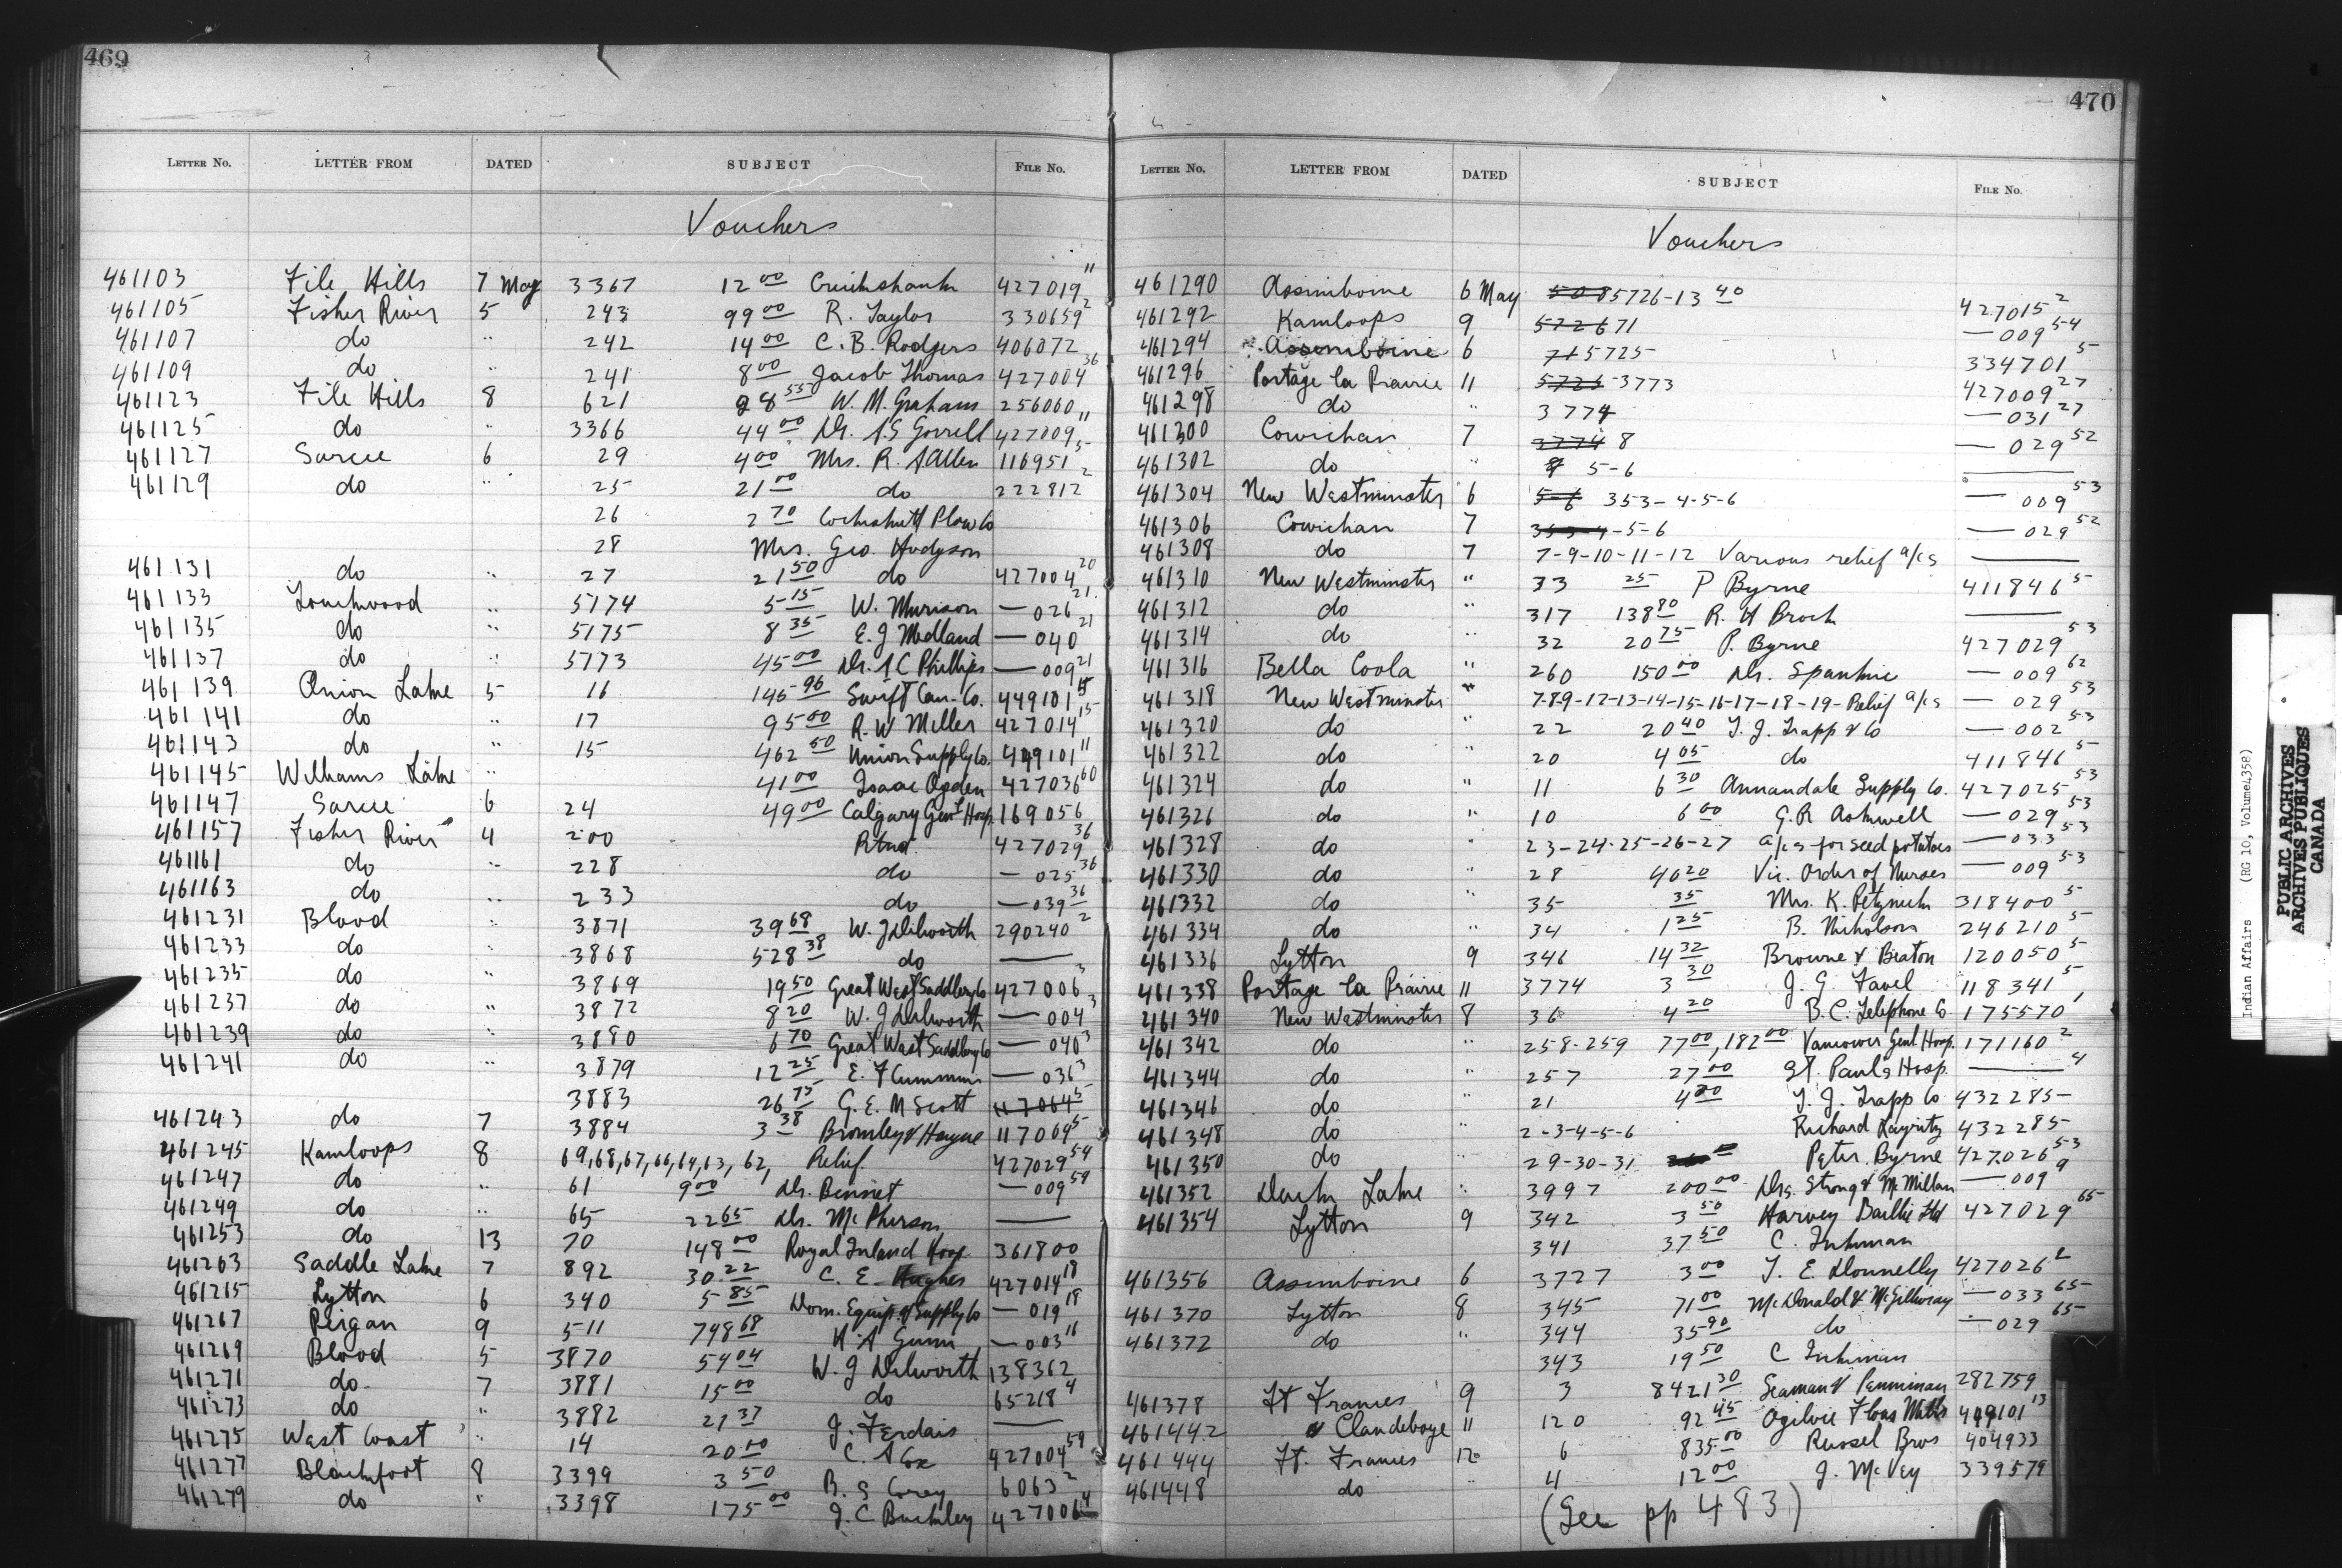 469
LETTER No. LETTER FROM DATED SUBJECT FILE No.
Vouchers
461103 File Hills 7 May 3367 12 00 Cruikshank 427019 11
461105 Fisher River 5 243 99 00 R. Taylor 330659 2
461107 do " 242 14 00 C. B. Rodgers 406072
461109 do " 241 8 00 Jacob Thomas 427004 36
461123 File Hills 8 621 W. M. Graham 256060
461125 do " 3366 44 00 Dr. A.S Gorrell 427009 11
461127 Sarcee 6 29 4 00 Mrs. R. Allen 116951 5
461129 do " 25 21 00 do 222812 2
26 2 70 Cockshutt Plow Co
28 Mrs. Geo. Hodgson
461131 do " 27 21 50 do 427004 20
461133 Touchwood " 5174 5 15 W. Murison — 026 21
461135 do " 5175 8 35 E. J Medland — 040 21
461137 do " 5173 45 00 Dr. A C Phillips — 009 21
461139 Onion Lake 5 16 146 96 Swift Can. Co. 449101 15
461141 do " 17 95 00 R. W Miller 427014 15
461143 do " 15 462 50 Union Supply Co. 449101 11
461145 Williams Lake " 41 00 Isaac Ogden 427036 60
461147 Sarcee 6 24 49 00 Calgary Genl Hosp. 169056
461157 Fisher River 4 200 Retnd. 427029 36
461161 do " 228 do — 025 36
461163 do " 233 do — 039 36
461231 Blood " 3871 39 68 W. J Dilworth 290240 2
461233 do " 3868 528 38 do ——
461235 do " 3869 19 50 Great West Saddlery Co 427006 3
461237 do " 3872 8 20 W. J Dilworth — 004 3
461239 do " 3880 6 70 Great West Saddlery Co — 040 3
461241 do " 3879 12 25 E. F Cummins — 036 3
3883 26 75 G. E. M Scott 117064 5
461243 do 7 3884 3 38 Bromley & Hague 117064 5
461245 Kamloops 8 69,68,67,66,64,63, 62, Relief 427029 54
461247 do " 61 9 00 Dr. Bennet — 009 54
461249 do " 65 22 65 Dr. McPherson ——
461253 do 13 70 148 00 Royal Inland Hosp. 361800
461263 Saddle Lake 7 892 30.22 C. E. Hughes 427014 18
461265 Lytton 6 340 5 85 Dom. Equip. & Supply Co — 019 18
461267 Peigan 9 511 748 68 H. A Gunn — 003 16
461269 Blood 5 3870 54 04 W. J Dilworth 138362
461271 do 7 3881 15 00 do 65218 4
461273 do " 3882 21 37 J. Ferdais ——
461275 West Coast " 14 20 00 C. A Cox 427004 59
461277 Blackfoot 8 3399 3 50 B. S Corey 6063 2
461279 do " 3398 175 00 J. C Buckley 427006 4
470
LETTER No. LETTER FROM DATED SUBJECT FILE No.
Vouchers
461290 Assiniboine 6 May 5085726-13 40 427015 2
461292 Kamloops 9 572671 — 009 54
461294 Assiniboine 6 715725 334701 5
461296 Portage la Prairie 11 5725-3773 427009 27
461298 do " 3774 — 031 27
461300 Cowichan 7 3774 8 — 029 52
461302 do " 5-6 ——
461304 New Westminster 6 5-6 353-4-5-6 — 009 53
461306 Cowichan 7 353-4-5-6 — 029 52
461308 do 7 7-9-10-11-12 Various relief a/cs ——
461310 New Westminster " 33 25 P Byrne 411846 5
461312 do " 317 138 80 R. H Brock ——
461314 do " 32 20 75 P. Byrne 427029 53
461316 Bella Coola " 260 150 00 Dr. Spankie — 009 62
461318 New Westminster " 7-8-9-12-13-14-15-16-17-18-19-Relief a/cs — 029 53
461320 do " 22 20 40 T. J. Trapp & Co — 002 53
461322 do " 20 4 05 do 411846 5
461324 do " 11 6 30 Annandale Supply Co. 427025 53
461326 do " 10 6 00 G. R Ashwell — 029 53
461328 do " 23-24-25-26-27 a/cs for seed potatoes — 033 53
461330 do " 28 40 20 Vic. Order of Nurses — 009 53
461332 do " 35 35 Mrs. K. 318400 5
461334 do " 34 1 25 B. Nicholson 246210 5
461336 Lytton 9 346 14 32 Browne & Beaton 120050 5
461338 Portage la Prairie 11 3774 3 30 J. G. Favel 118341 5
461340 New Westminster 8 36 4 20 B. C. Telephone Co 175570 1
461342 do " 258-259 77 00, 182 00 Vancouver Genl Hosp. 171160 2
461344 do " 257 27 00 St. Pauls Hosp. —— 4
461346 do " 21 4 00 T. J. Trapp Co 432285
461348 do " 2-3-4-5-6 Richard Layritz 432285
461350 do " 29-30-31 Peter Byrne 427026 53
461352 Duck Lake " 3997 200 00 Drs. Strong & McMillan — 009 9
461354 Lytton 9 342 3 50 Harvey Bailie Ltd 427029 65
341 37 50 C. Inkman
461356 Assiniboine 6 3727 3 00 T. E. Donnelly 427026 2
461370 Lytton 8 345 71 00 McDonald & McGillivray — 033 65
461372 do " 344 35 90 do — 029 65
343 19 50 C Inkman
461378 Ft Frances 9 3 8421 30 Seaman & Penniman 282759
461442 Clandeboye 11 120 92 45 Ogilvie Flour Mills 449101 13
461444 Ft. Frances 12 6 835 00 Russel Bros 404933
461448 do " 4 12 00 J. McVey 339579
(See pp 483)
Indian Affairs (RG 10, Volume 4358)
PUBLIC ARCHIVES
ARCHIVES PUBLIQUES
CANADA